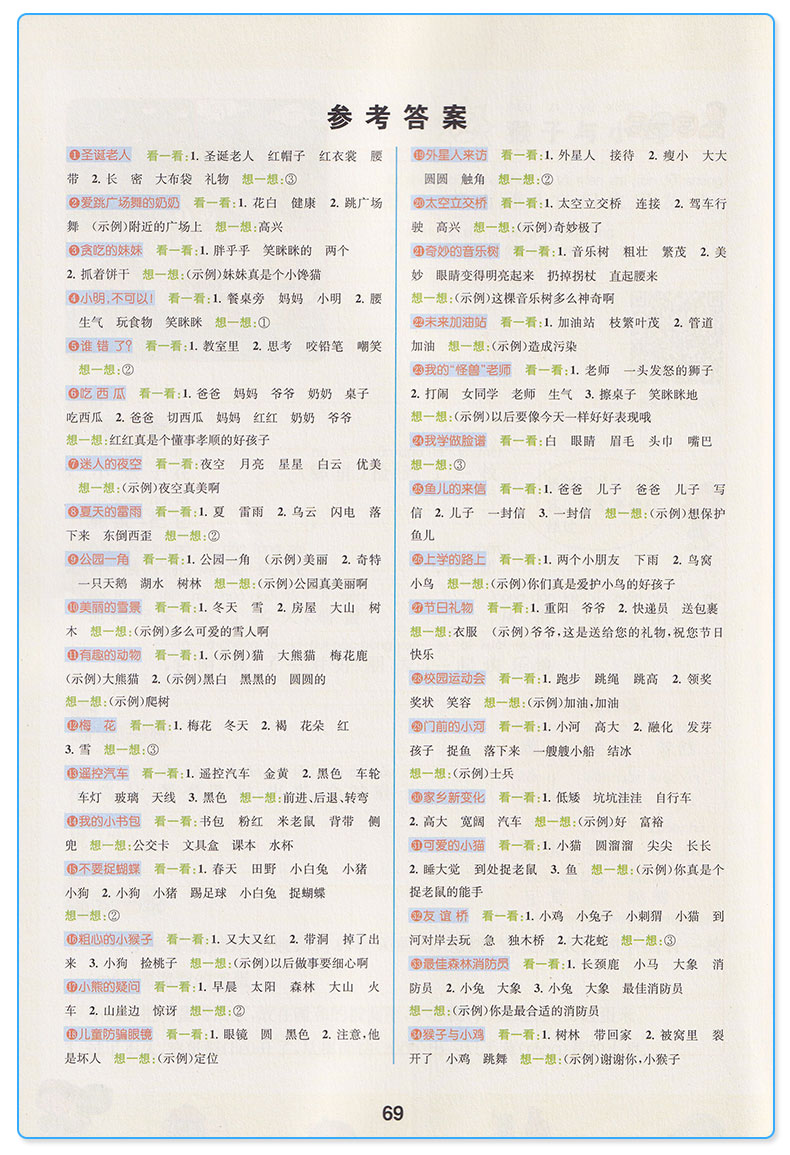 参考答案
❶圣诞老人 看一看:1. 圣诞老人 红帽子 红衣裳 腰
带 2. 长 密 大布袋 礼物 想一想:③
❷爱跳广场舞的奶奶 看一看:1. 花白 健康 2. 跳广场
舞 (示例)附近的广场上 想一想:高兴
❸贪吃的妹妹 看一看:1. 胖乎乎 笑眯眯的 两个
2. 抓着饼干 想一想:(示例)妹妹真是个小馋猫
❹小明,不可以! 看一看:1. 餐桌旁 妈妈 小明 2. 腰
生气 玩食物 笑眯眯 想一想:①
❺谁错了? 看一看:1. 教室里 2. 思考 咬铅笔 嘲笑
想一想:②
❻吃西瓜 看一看:1. 爸爸 妈妈 爷爷 奶奶 桌子
吃西瓜 2. 爸爸 切西瓜 妈妈 红红 奶奶 爷爷
想一想:红红真是个懂事孝顺的好孩子
❼迷人的夜空 看一看:夜空 月亮 星星 白云 优美
想一想:(示例)夜空真美啊
❽夏天的雷雨 看一看:1. 夏 雷雨 2. 乌云 闪电 落
下来 东倒西歪 想一想:②
❾公园一角 看一看:1. 公园一角 (示例)美丽 2. 奇特
一只天鹅 湖水 树林 想一想:(示例)公园真美丽啊
❿美丽的雪景 看一看:1. 冬天 雪 2. 房屋 大山 树
木 想一想:(示例)多么可爱的雪人啊
⓫有趣的动物 看一看:1. (示例)猫 大熊猫 梅花鹿
(示例)大熊猫 2. (示例)黑白 黑黑的 圆圆的
想一想:(示例)爬树
⓬梅花 看一看:1. 梅花 冬天 2. 褐 花朵 红
3. 雪 想一想:③
⓭遥控汽车 看一看:1. 遥控汽车 金黄 2. 黑色 车轮
车灯 玻璃 天线 3. 黑色 想一想:前进、后退、转弯
⓮我的小书包 看一看:书包 粉红 米老鼠 背带 侧
兜 想一想:公交卡 文具盒 课本 水杯
⓯不要捉蝴蝶 看一看:1. 春天 田野 小白兔 小猪
小狗 2. 小狗 小猪 踢足球 小白兔 捉蝴蝶
想一想:②
⓰粗心的小猴子 看一看:1. 又大又红 2. 带洞 掉了出
来 3. 小狗 捡桃子 想一想:(示例)以后做事要细心啊
⓱小熊的疑问 看一看:1. 早晨 太阳 森林 大山 火
车 2. 山崖边 惊讶 想一想:②
⓲儿童防骗眼镜 看一看:1. 眼镜 圆 黑色 2. 注意,他
是坏人 想一想:(示例)定位
⓳外星人来访 看一看:1. 外星人 接待 2. 瘦小 大大
圆圆 触角 想一想:②
⓴太空立交桥 看一看:1. 太空立交桥 连接 2. 驾车行
驶 高兴 想一想:(示例)奇妙极了
㉑奇妙的音乐树 看一看:1. 音乐树 粗壮 繁茂 2. 美
妙 眼睛变得明亮起来 扔掉拐杖 直起腰来
想一想:(示例)这棵音乐树多么神奇啊
㉒未来加油站 看一看:1. 加油站 枝繁叶茂 2. 管道
加油 想一想:(示例)造成污染
㉓我的“怪兽”老师 看一看:1. 老师 一头发怒的狮子
2. 打闹 女同学 老师 生气 3. 擦桌子 笑眯眯地
想一想:(示例)以后要像今天一样好好表现哦
㉔我学做脸谱 看一看:白 眼睛 眉毛 头巾 嘴巴
想一想:③
㉕鱼儿的来信 看一看:1. 爸爸 儿子 爸爸 儿子 写
信 2. 儿子 一封信 3. 一封信 想一想:(示例)想保护
鱼儿
㉖上学的路上 看一看:1. 两个小朋友 下雨 2. 鸟窝
小鸟 想一想:(示例)你们真是爱护小鸟的好孩子
㉗节日礼物 看一看:1. 重阳 爷爷 2. 快递员 送包裹
想一想:衣服 (示例)爷爷,这是送给您的礼物,祝您节日
快乐
㉘校园运动会 看一看:1. 跑步 跳绳 跳高 2. 领奖
奖状 笑容 想一想:(示例)加油,加油
㉙门前的小河 看一看:1. 小河 高大 2. 融化 发芽
孩子 捉鱼 落下来 一艘艘小船 结冰
想一想:(示例)士兵
㉚家乡新变化 看一看:1. 低矮 坑坑洼洼 自行车
2. 高大 宽阔 汽车 想一想:(示例)好 富裕
㉛可爱的小猫 看一看:1. 小猫 圆溜溜 尖尖 长长
2. 睡大觉 到处捉老鼠 3. 鱼 想一想:(示例)你真是个
捉老鼠的能手
㉜友谊桥 看一看:1. 小鸡 小兔子 小刺猬 小猫 到
河对岸去玩 急 独木桥 2. 大花蛇 想一想:③
㉝最佳森林消防员 看一看:1. 长颈鹿 小马 大象 消
防员 2. 小兔 大象 3. 小兔 大象 最佳消防员
想一想:(示例)你是最合适的消防员
㉞猴子与小鸡 看一看:1. 树林 带回家 2. 被窝里 裂
开了 小鸡 跳舞 想一想:(示例)谢谢你,小猴子
69